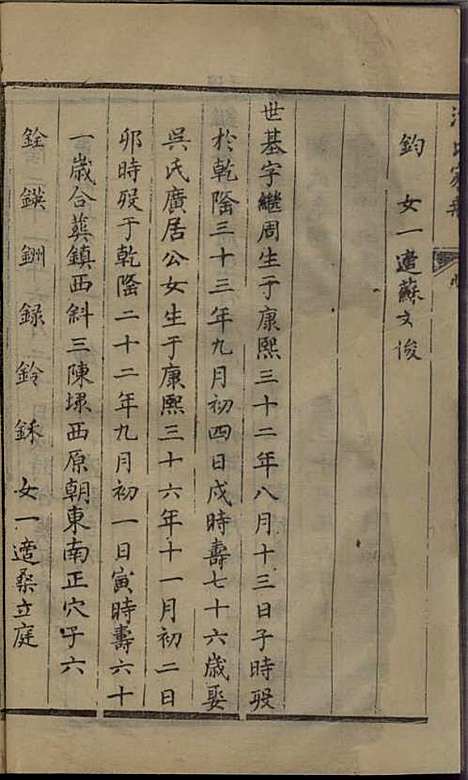 氏家
鈞 女一適蘇文俊
世基字繼周生于康熙三十二年八月十三日子時殁
於乾隆三十三年九月初四日戌時壽七十六歳娶
吳氏廣居公女生于康熙三十六年十一月初二日
卯時殁于乾隆二十二年九月初一日寅時壽六十
一歳合葬鎮西斜三陳埭西原朝東南正穴子六
銓鍈銂録鈴銤 女一適桑立庭